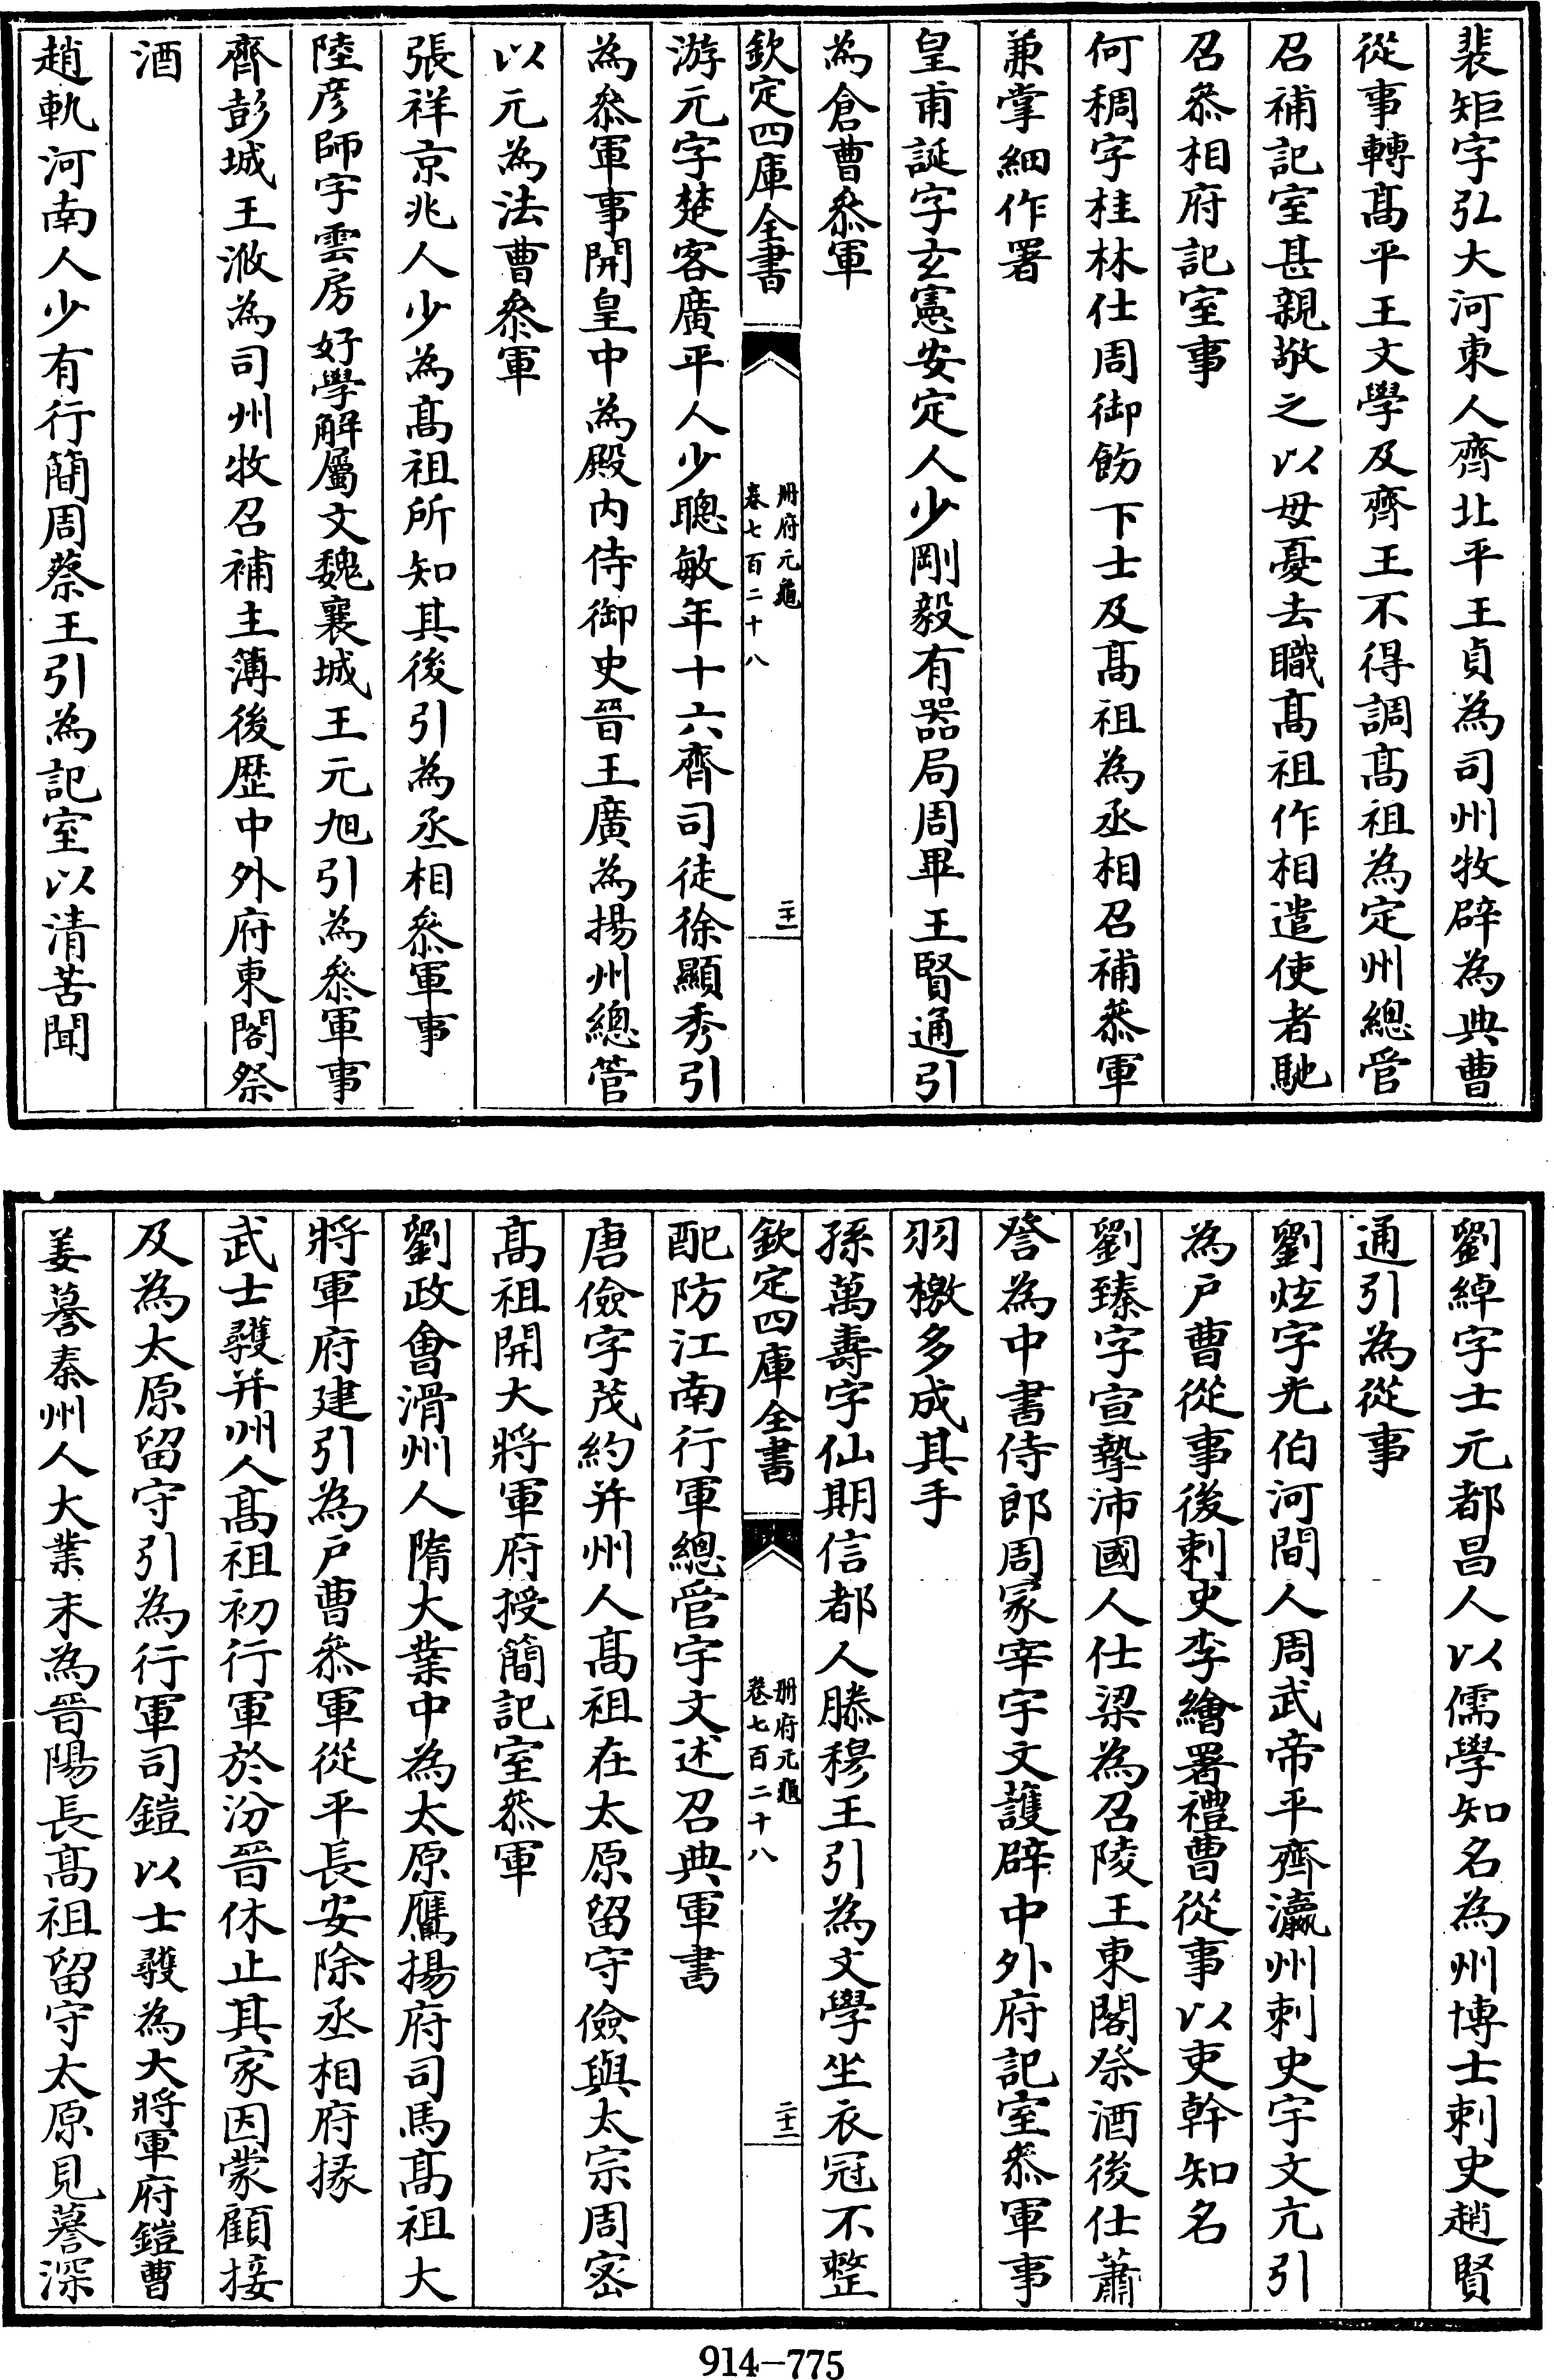 裴矩字弘大河東人齊北平王貞為司州牧辟為典曹
從事轉髙平王文學及齊王不得調髙祖為定州總管
召補記室甚親敬之以母憂去職髙祖作相遣使者馳
召叅相府記室事
何稠字桂林仕周御飭下士及髙祖為丞相召補叅軍
兼掌細作署
皇甫誕字玄憲安定人少剛毅有器局周畢王賢通引
為倉曹叅軍
欽定四庫全書
冊府元龜
卷七百二十八
二十一
游元字楚客廣平人少聰敏年十六齊司徒徐顯秀引
為叅軍事開皇中為殿内侍御史晉王廣為揚州總管
以元為法曹叅軍
張祥京兆人少為髙祖所知其後引為丞相叅軍事
陸彦師字雲房好學解屬文魏襄城王元旭引為叅軍事
齊彭城王浟為司州牧召補主薄後歴中外府東閣祭
酒
趙軌河南人少有行簡周蔡王引為記室以清苦聞
劉綽字士元都昌人以儒學知名為州博士刺史趙賢
通引為從事
劉炫字光伯河間人周武帝平齊瀛州刺史宇文亢引
為戸曹從事後刺史李繪署禮曹從事以吏幹知名
劉臻字宣摯沛國人仕梁為召陵王東閣祭酒後仕蕭
詧為中書侍郎周冢宰宇文䕶辟中外府記室叅軍事
羽檄多成其手
孫萬壽字仙期信都人滕穆王引為文學坐衣冠不整
欽定四庫全書
冊府元龜
卷七百二十八
二十二
配防江南行軍總管宇文述召典軍書
唐儉字茂約并州人髙祖在太原留守儉與太宗周密
髙祖開大將軍府授簡記室叅軍
劉政會滑州人隋大業中為太原鷹揚府司馬髙祖大
將軍府建引為戸曹叅軍從平長安除丞相府掾
武士彠并州人髙祖初行軍於汾晉休止其家因蒙顧接
及為太原留守引為行軍司鎧以士彠為大將軍府鎧曹
姜謩秦州人大業末為晉陽長髙祖留守太原見謩深
914-775